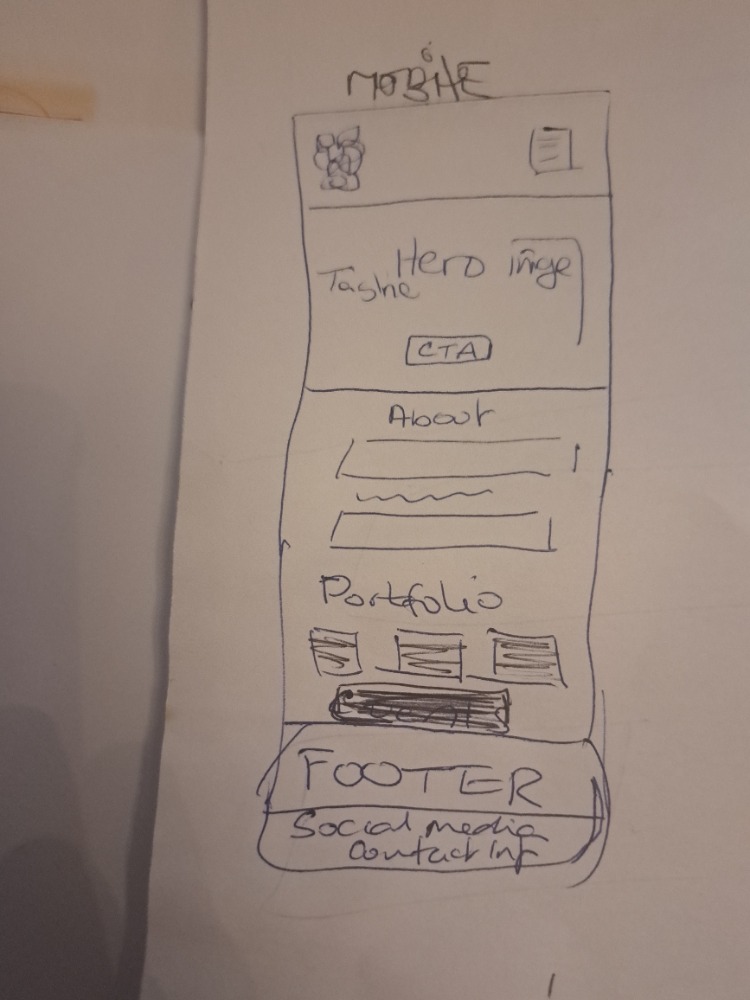 MOBILE
Hero image
Tagline
CTA
About
Portfolio
FOOTER
Social media
Contact Inf